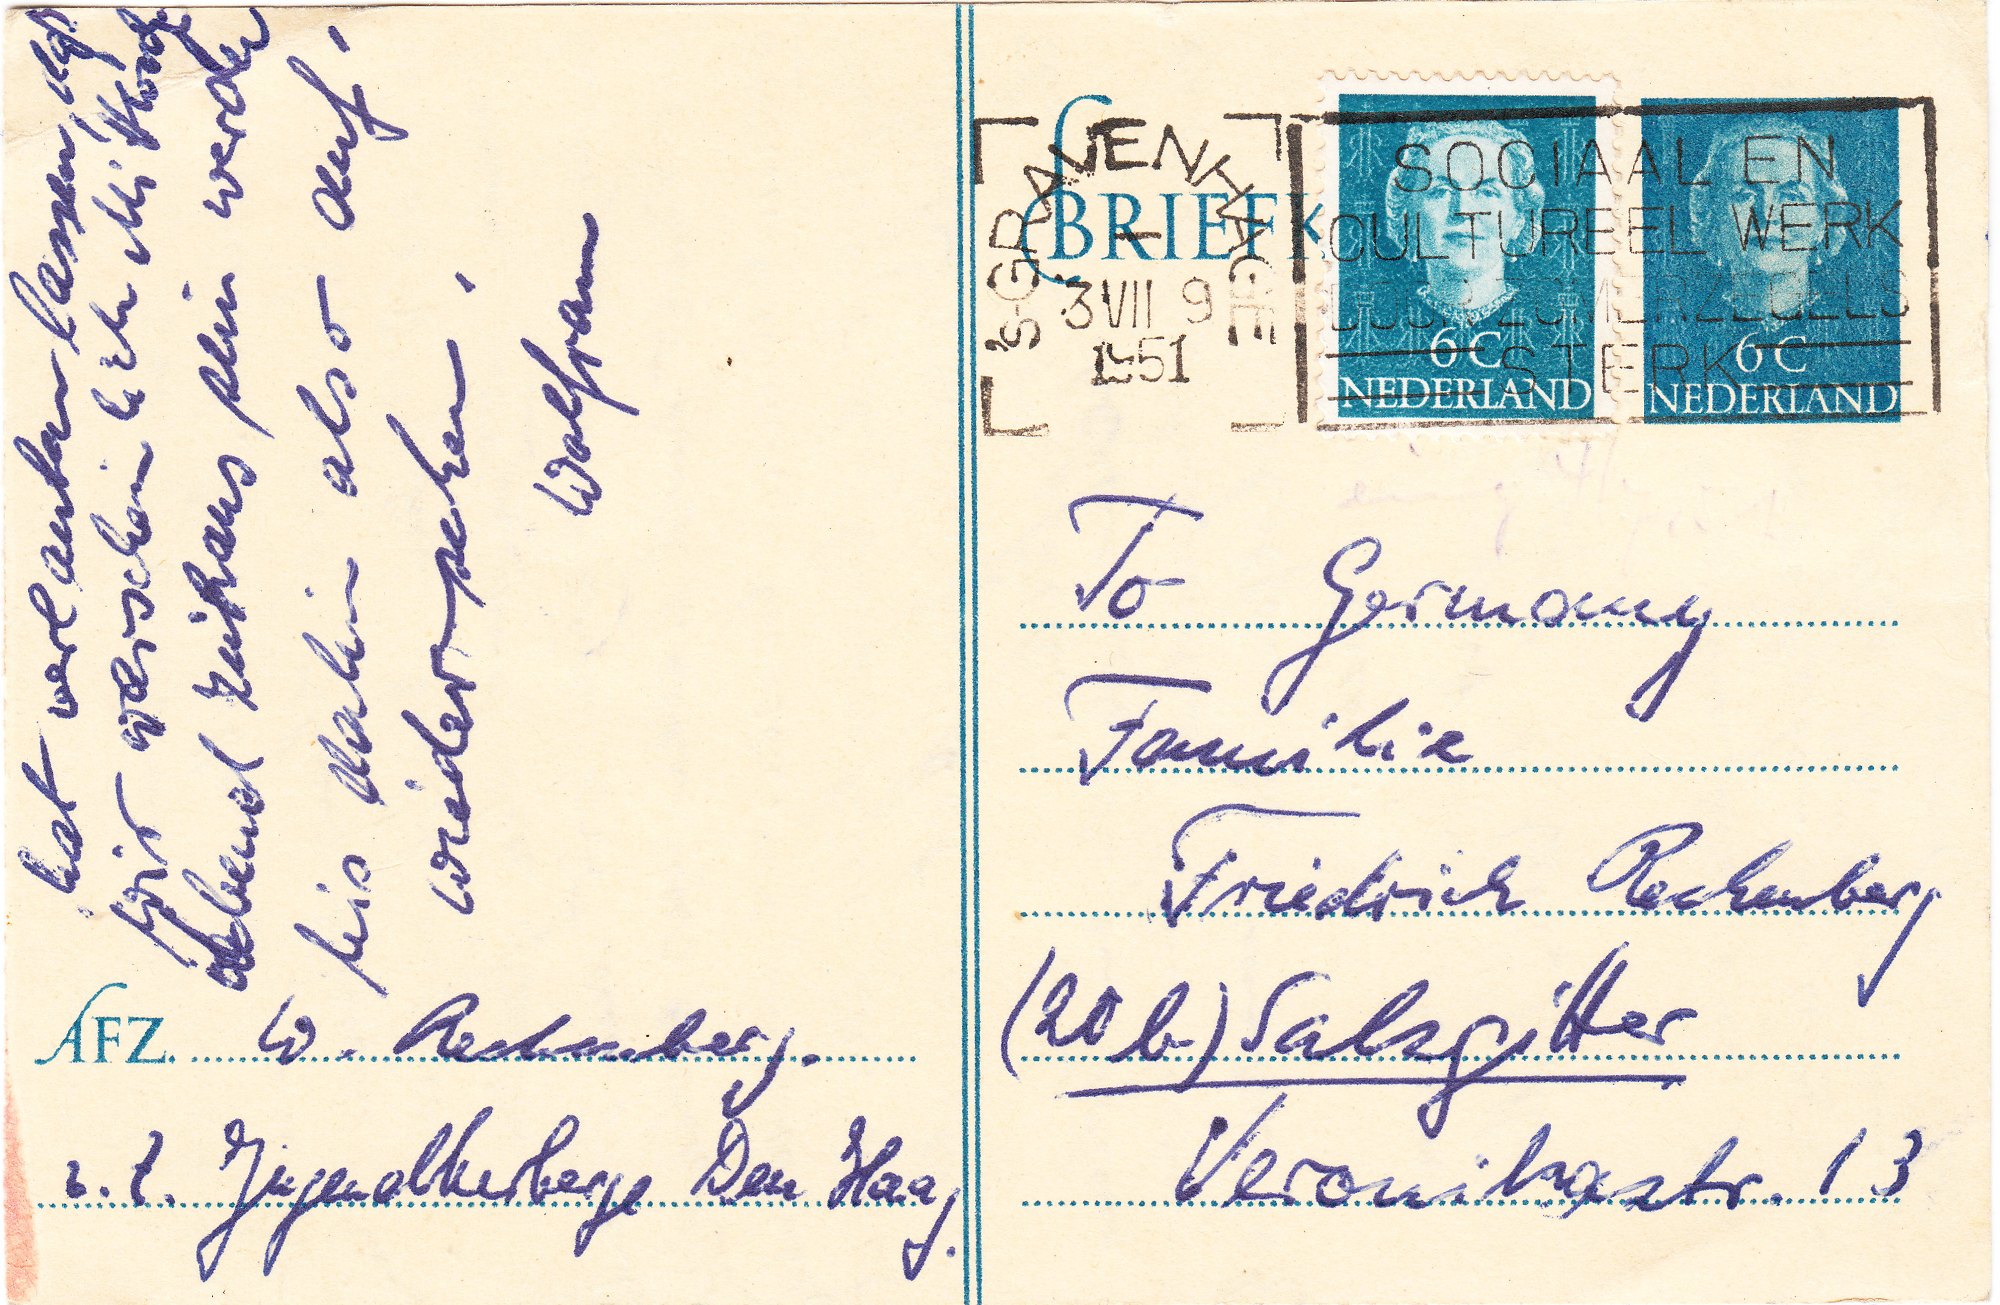 hat verlauten lassen, daß
wir warscheinlich Mittwoch
Abend zuhaus sein werden
bis dahin also auf,
wiedersehen,
Wolfram
AFZ. W. Rechenberg.
z. Z. Jugendherberge Den Haag.
BRIEFK
'S-GRAVENHAGE
3 VII 9
1951
SOCIAAL EN
CULTUREEL WERK
DOOR ZOMERZEGELS
STERK
6 C
NEDERLAND
6 C
NEDERLAND
To Germany
Familie
Friedrich Rechenberg
(20 b) Salzgitter
Veronikastr. 13